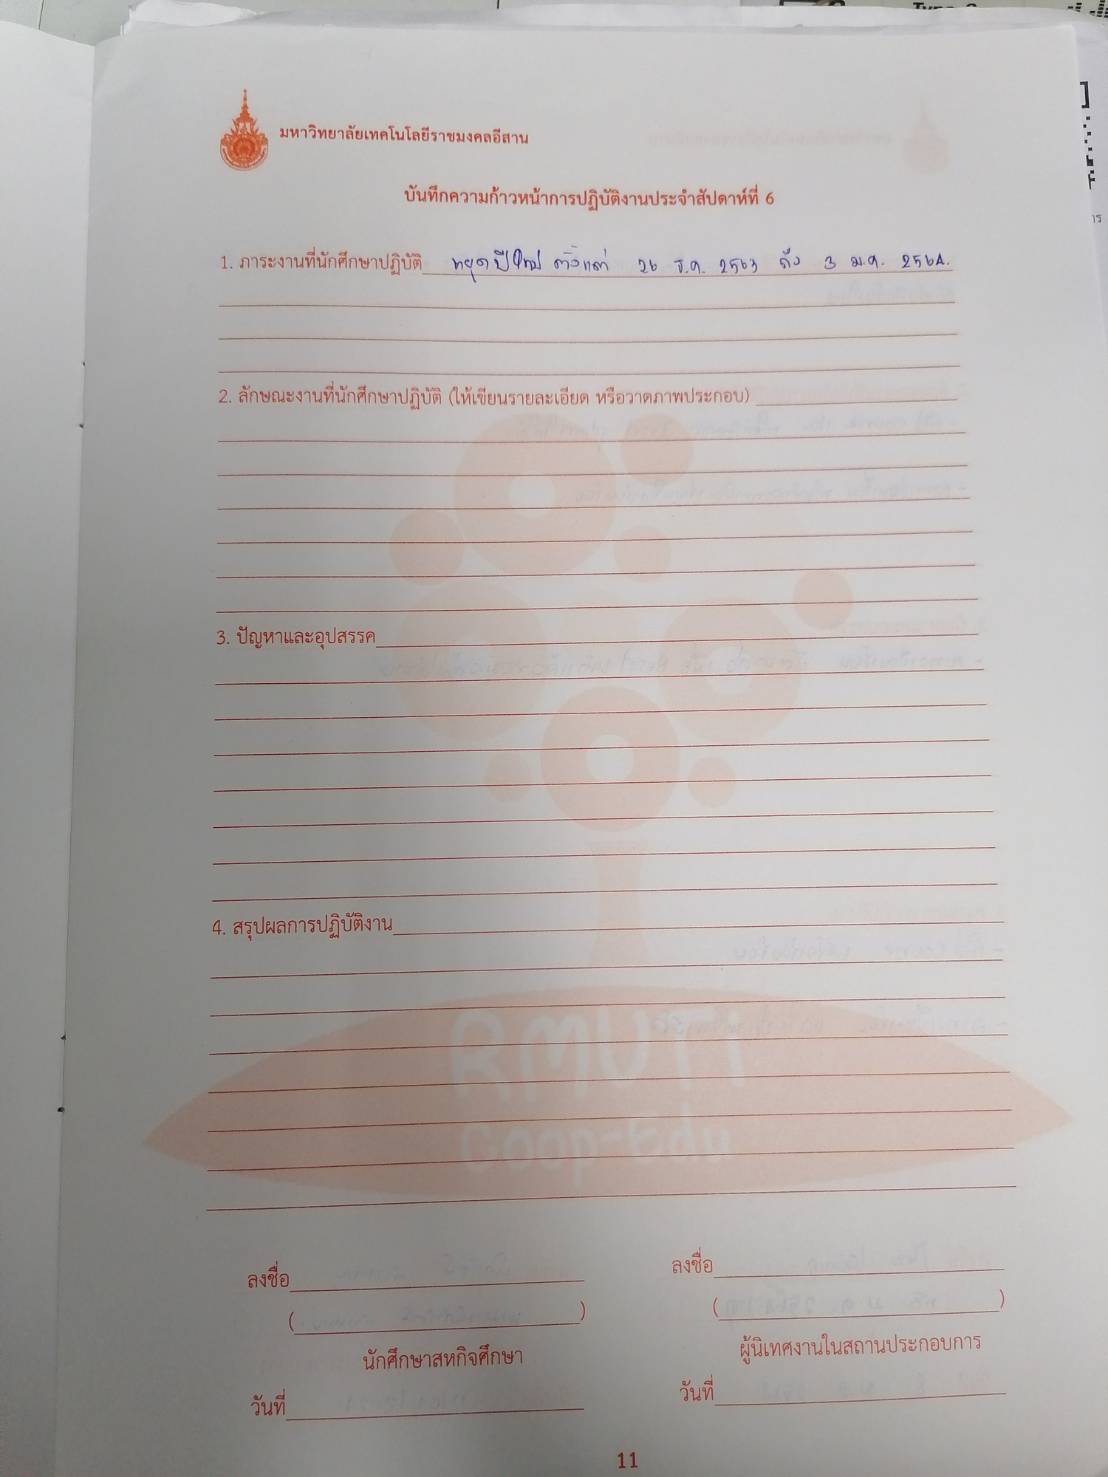 มหาวิทยาลัยเทคโนโลยีราชมงคลอีสาน
บันทึกความก้าวหน้าการปฏิบัติงานประจำสัปดาห์ที่ 6
1. ภาระงานที่นักศึกษาปฏิบัติ หยุดปีใหม่ ตั้งแต่ 26 ธ.ค. 2563 ถึง 3 ม.ค. 2564.
2. ลักษณะงานที่นักศึกษาปฏิบัติ (ให้เขียนรายละเอียด หรือวาดภาพประกอบ)
3. ปัญหาและอุปสรรค
4. สรุปผลการปฏิบัติงาน
RMUTI
ลงชื่อ ลงชื่อ
( ) ( )
นักศึกษาสหกิจศึกษา ผู้นิเทศงานในสถานประกอบการ
วันที่ วันที่
11